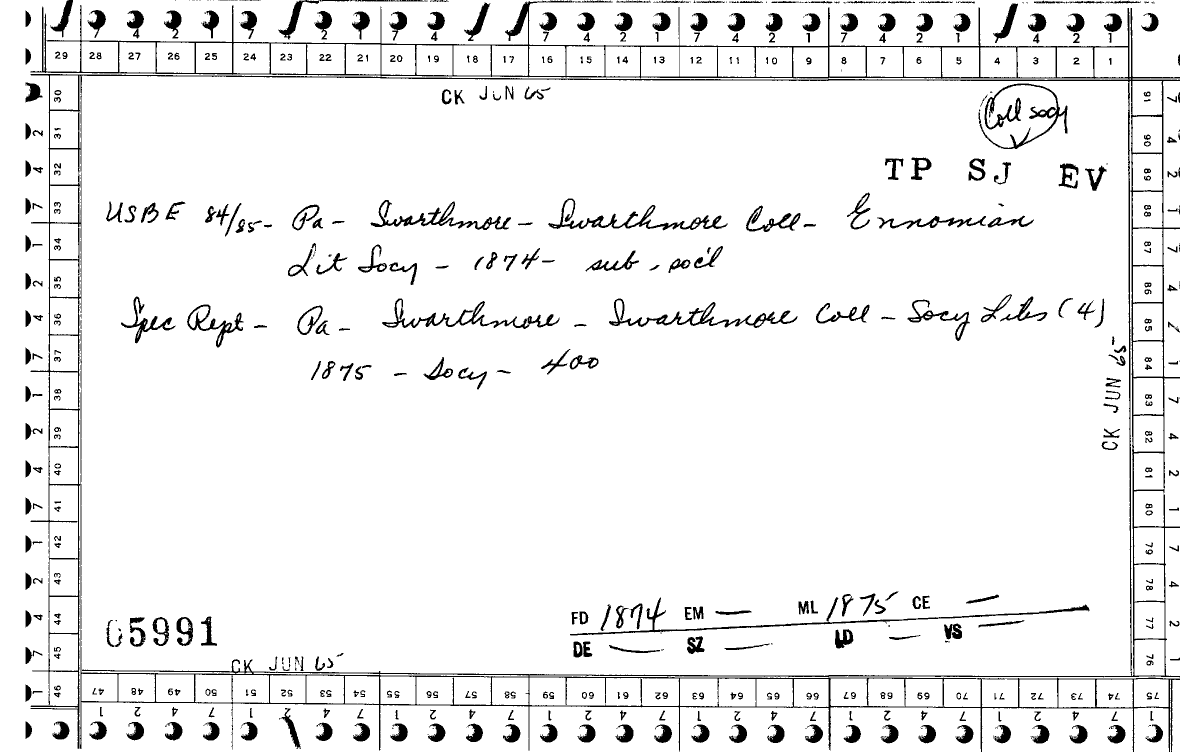 7 4 2 1 7 4 2 1 7 4 2 1 7 4 2 1 7 4 2 1 7 4 2 1 7 4 2 1
29 28 27 26 25 24 23 22 21 20 19 18 17 16 15 14 13 12 11 10 9 8 7 6 5 4 3 2 1
CK JUN 65
Coll socy
TP SJ EV
USBE 84/85- Pa- Swarthmore- Swarthmore Coll- Ennomian
Lit Socy - 1874- sub, soc'l
Spec Rept - Pa- Swarthmore - Swarthmore Coll - Socy Libs (4)
1875 - Socy - 400
CK JUN 65
FD 1874 EM — ML 1875 CE —
DE — SZ — LD — VS —
05991
CK JUN 65
30 31 32 33 34 35 36 37 38 39 40 41 42 43 44 45 46
91 90 89 88 87 86 85 84 83 82 81 80 79 78 77 76 75
47 48 49 50 51 52 53 54 55 56 57 58 59 60 61 62 63 64 65 66 67 68 69 70 71 72 73 74 75
1 2 4 7 1 2 4 7 1 2 4 7 1 2 4 7 1 2 4 7 1 2 4 7 1 2 4 7 1